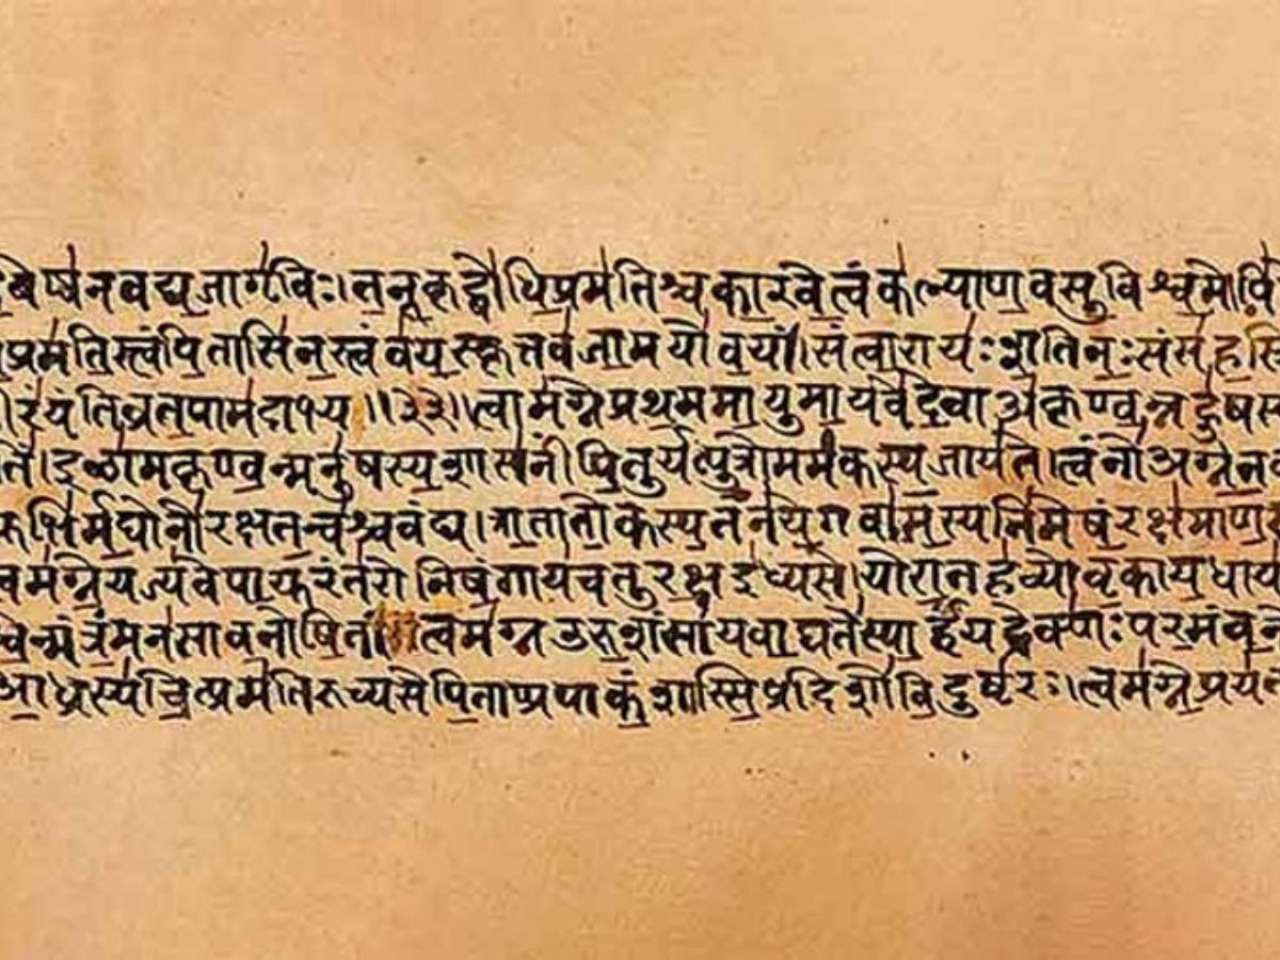 वेष्वनवद्यजागृविः।तनूकृद्बोधिप्रमतिश्चकारवेत्वंकल्याणवसुविश्वमोपि
प्रमतिस्त्वंपितासिनस्त्वंवयस्कृत्तवजामयोवयं॥संत्वारायःशतिनःसंसहस्रि
रंयंतिव्रतपामदाभ्य॥३३॥त्वामग्नेप्रथममायुमायवेदेवाअकृण्वन्नहुषस्य
तिं।इळामकृण्वन्मनुषस्यशासनींपितुर्यत्पुत्रोममकस्यजायते।त्वंनोअग्नेतव
भिर्मघोनोरक्षतन्वश्चवंद्य।त्रातातोकस्यतनयेगवामस्यनिमेषंरक्षमाण
त्वमग्नेयज्यवेपायुरंतरोनिषंगायचतुरक्षइध्यसे।योरातहव्योवृकायधाय
चिन्मंत्रंमनसावनोषितं।त्वमग्नउरुशंसायवाघतेस्पार्हंयद्रेक्णःपरमंवनो
आध्रस्यचित्प्रमतिरुच्यसेपिताप्रपाकंशास्सिप्रदिशोविदुष्टरः।त्वमग्नेप्रयत